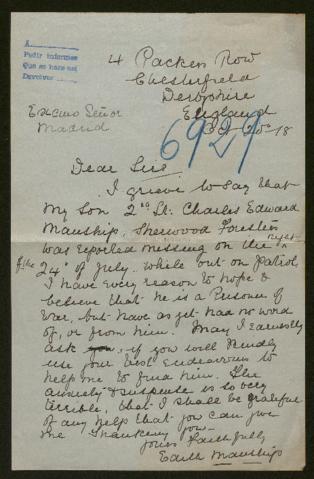 A
Pedir informes
Que se hará así
Devolver
4 Packers Row
Chesterfield
Derbyshire
England
Excmo Señor
Madrid
6929
Dear Sir
I grieve to say that
My Son 2nd Lt. Charles Edward
Manship, Sherwood Foresters
was reported missing on the night
of the 24th of July while out on Patrol
I have every reason to hope &
believe that he is a Prisoner of
War, but have as yet had no word
of, or from him. May I earnestly
ask you, if you will kindly
use your best endeavours to
help me to find him. The
anxiety & suspense is so very
terrible, that I shall be grateful
of any help that you can give
me Thanking you
Yours Faithfully
Edith Manship